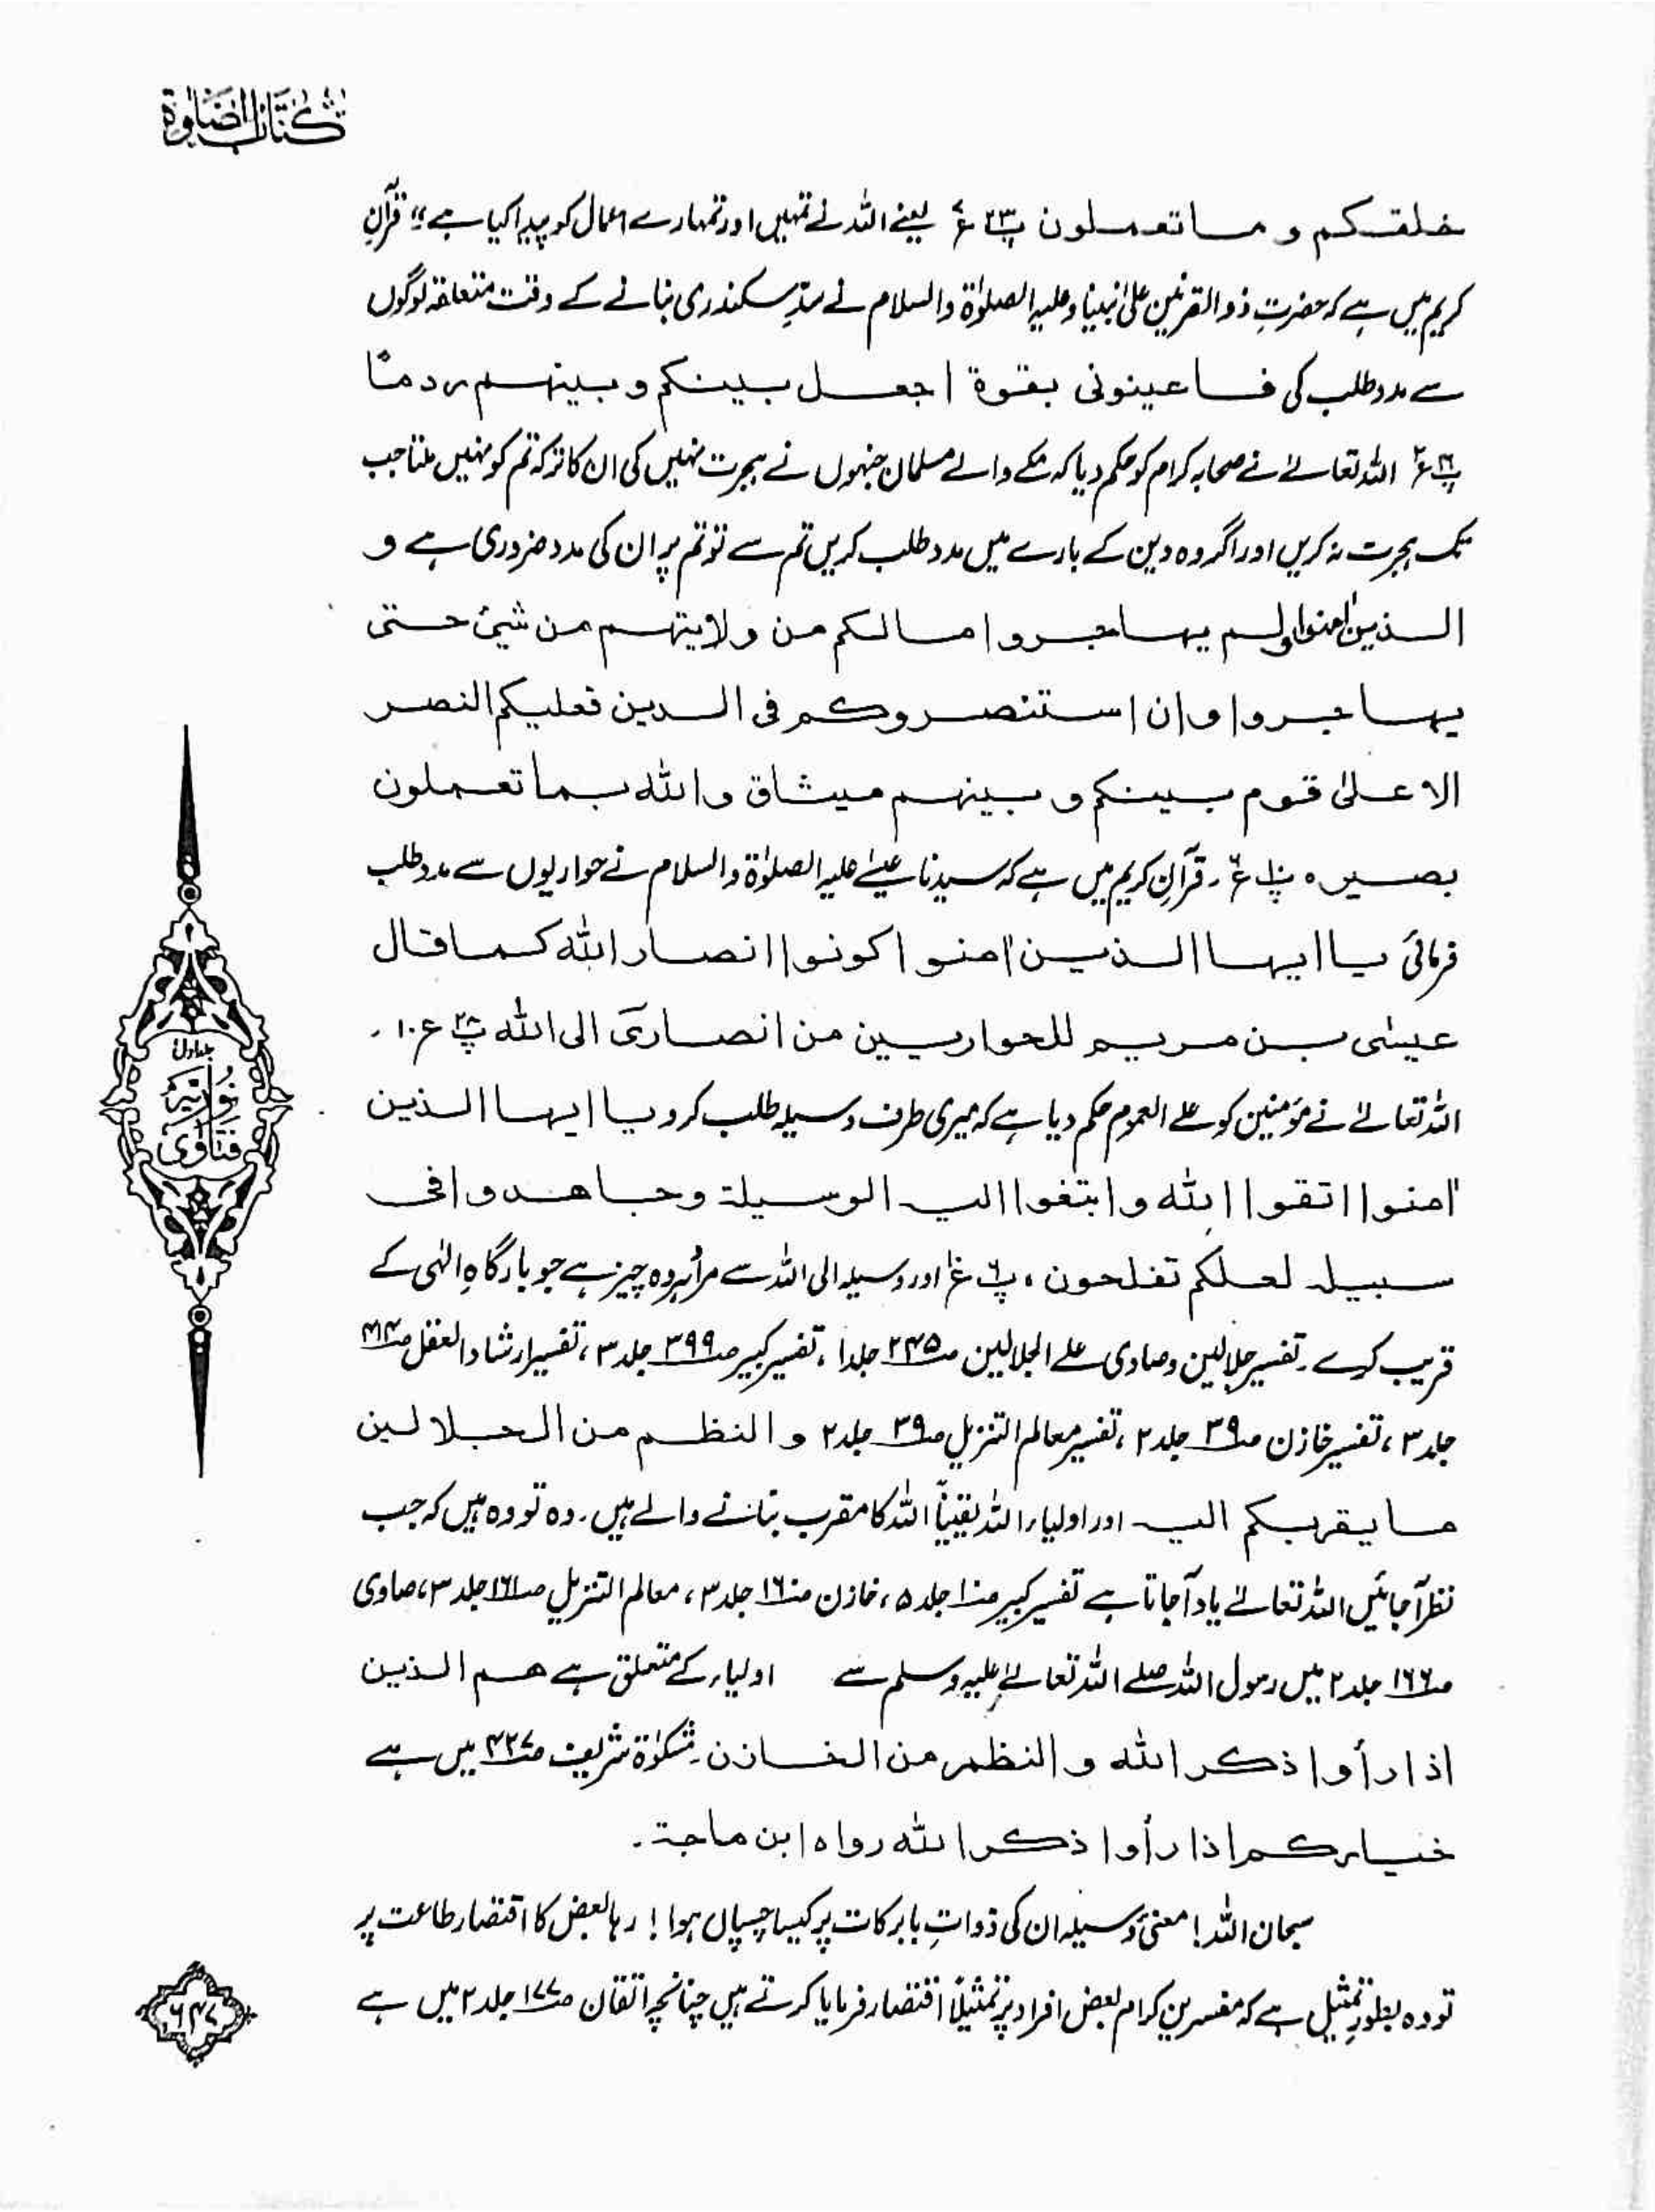 كتاب الصلوة
خلقكم و ما تعملون پ۲۳ ع۷ یعنے اللہ نے تمہیں اور تمہارے اعمال کو پیدا کیا ہے" قرآنِ
کریم میں ہے کہ حضرتِ ذو القرنین علیٰ نبینا وعلیہ الصلوٰۃ والسلام نے سدِّ سکندری بنانے کے وقت متعلقہ لوگوں
سے مدد طلب کی فاعينونی بقوة اجعل بينكم و بينهم ردمًا
پ۱۶ ع۲ اللہ تعالےٰ نے صحابہ کرام کو حکم دیا کہ مکے والے مسلمان جنہوں نے ہجرت نہیں کی ان کا ترکہ تم کو نہیں ملتا جب
تک ہجرت نہ کریں اور اگر وہ دین کے بارے میں مدد طلب کریں تم سے تو تم پر ان کی مدد ضروری ہے و
الذين اٰمنوا ولم يهاجروا مالكم من ولايتهم من شیئ حتی
يهاجروا وان استنصروكم فی الدين فعليكم النصر
الا علیٰ قوم بينكم و بينهم ميثاق والله بما تعملون
بصير ہ پ۱۰ ع۶ ۔ قرآنِ کریم میں ہے کہ سیدنا عیسےٰ علیہ الصلوٰۃ والسلام نے حواریوں سے مدد طلب
فرمائی يا ايها الذين اٰمنوا كونوا انصار الله كما قال
عيسٰی بن مريم للحواريين من انصاری الی الله پ۲۸ ع۱۰ ۔
اللہ تعالےٰ نے مؤمنین کو علے العموم حکم دیا ہے کہ میری طرف وسیلہ طلب کرو يا ايها الذين
اٰمنوا اتقوا الله وابتغوا اليه الوسيلة وجاهدوا فی
سبيله لعلكم تفلحون ، پ۶ ع۱۰ اور وسیلہ الی اللہ سے مراد ہر وہ چیز ہے جو بارگاہِ الٰہی کے
قریب کرے ۔ تفسیر جلالین وصاوی علے الجلالین ص۲۴۵ جلد۱ ، تفسیر کبیر ص۳۹۹ جلد ۳ ، تفسیر ارشاد العقل ص۴۱۴
جلد ۳ ، تفسیر خازن ص۳۹ جلد ۲ ، تفسیر معالم التنزیل ص۳۹ جلد ۲ و النظم من الجلالين
ما يقربكم اليه اور اولیاء اللہ یقیناً اللہ کا مقرب بنانے والے ہیں ۔ وہ تو وہ ہیں کہ جب
نظر آجائیں اللہ تعالےٰ یاد آجاتا ہے تفسیر کبیر ص۱۰ جلد ۵ ، خازن ص۱۶۰ جلد ۳ ، معالم التنزیل ص۱۶۱ جلد ۳ ، صاوی
ص۱۶۶ جلد ۲ میں رسول اللہ صلے اللہ تعالےٰ علیہ وسلم سے اولیاء کے متعلق ہے هم الذين
اذا رأوا ذكر الله و النظم من الخازن ۔ مشکوٰۃ شریف ص۴۲۷ میں ہے
خياركم اذا رأوا ذكر الله رواه ابن ماجة ۔
سبحان اللہ ! معنیٔ وسیلہ ان کی ذواتِ بابرکات پر کیسا چسپاں ہوا ! رہا بعض کا اقتصار طاعت پر
تو وہ بطورِ تمثیل ہے کہ مفسرینِ کرام بعض افراد پر تمثیلاً اقتصار فرمایا کرتے ہیں چنانچہ اتقان ص۱۷۷ جلد ۲ میں ہے
جلد اول
نوریہ
فتاویٰ
۶۴۷